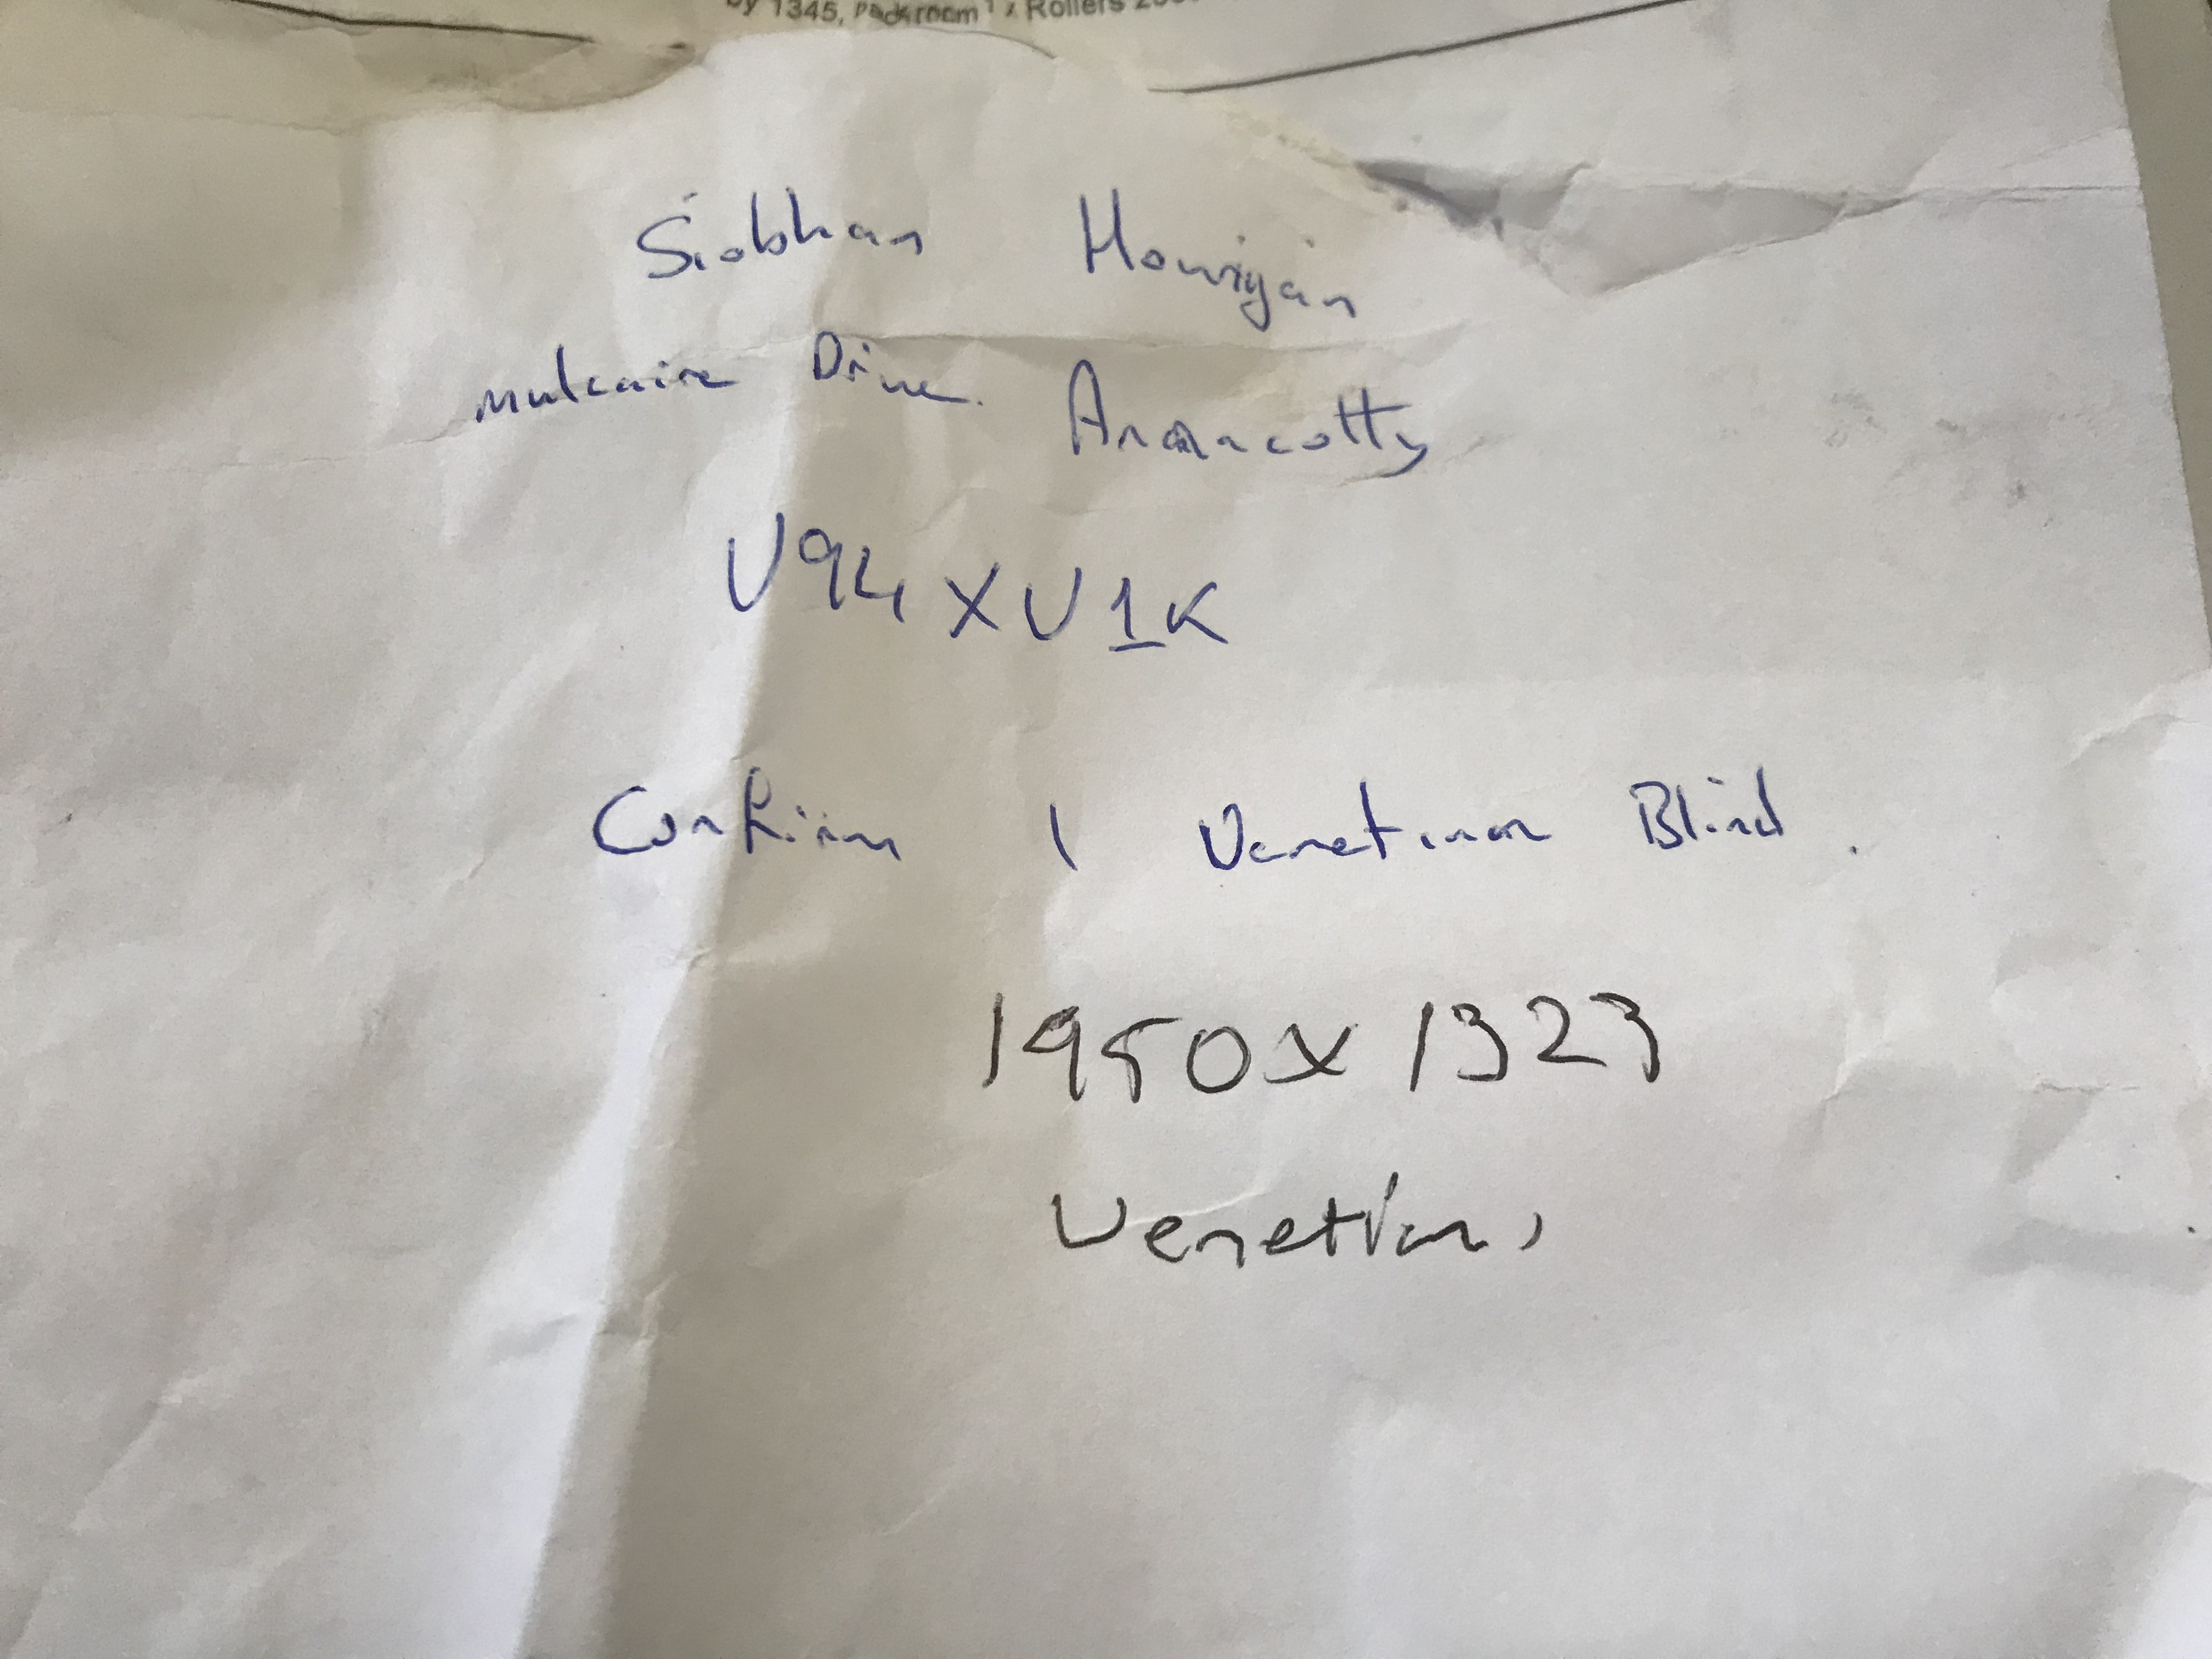 by 1345, Padsroom 1 x Rollers
Siobhan Horrigan
mulcaire Drive. Annacotty
V94XV1K
Confirm 1 Venetian Blind.
1950 x 1323
Venetian,